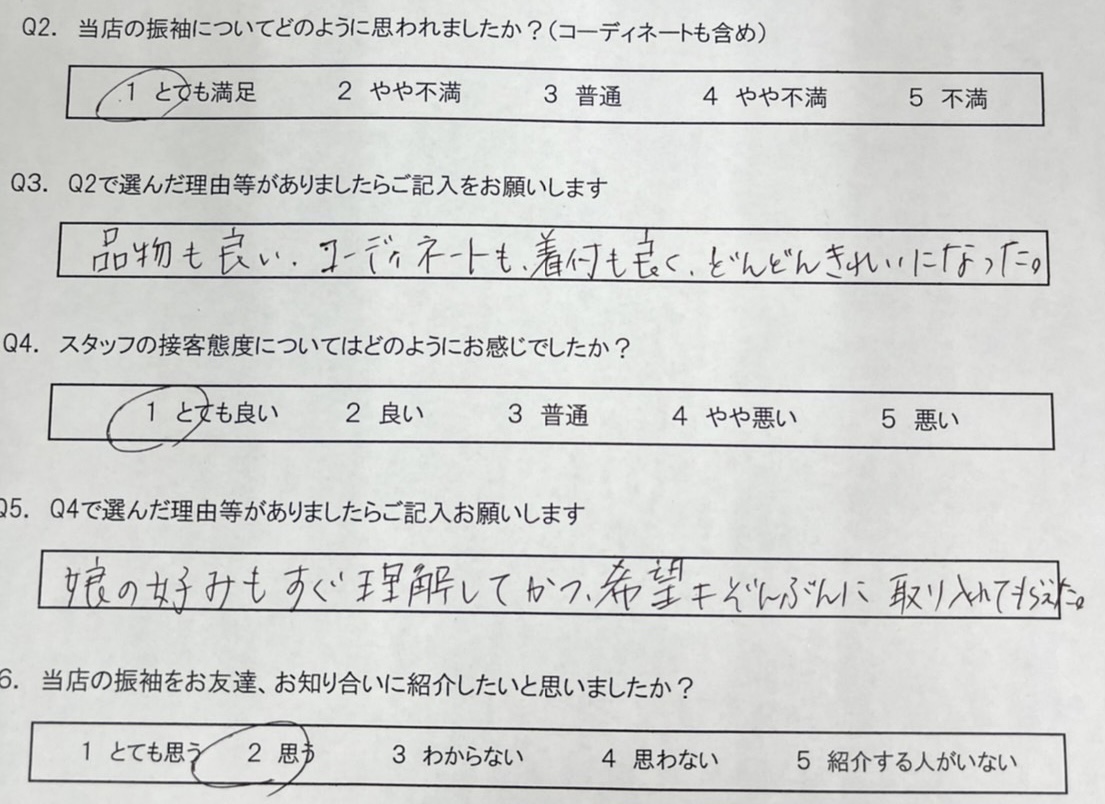 Q2. 当店の振袖についてどのように思われましたか？(コーディネートも含め)
1 とても満足 2 やや不満 3 普通 4 やや不満 5 不満
Q3. Q2で選んだ理由等がありましたらご記入をお願いします
品物も良い、コーディネートも、着付も良く、どんどんきれいになった。
Q4. スタッフの接客態度についてはどのようにお感じでしたか？
1 とても良い 2 良い 3 普通 4 やや悪い 5 悪い
Q5. Q4で選んだ理由等がありましたらご記入お願いします
娘の好みもすぐ理解してかつ、希望もぞんぶんに取り入れてもらえた。
6. 当店の振袖をお友達、お知り合いに紹介したいと思いましたか？
1 とても思う 2 思う 3 わからない 4 思わない 5 紹介する人がいない